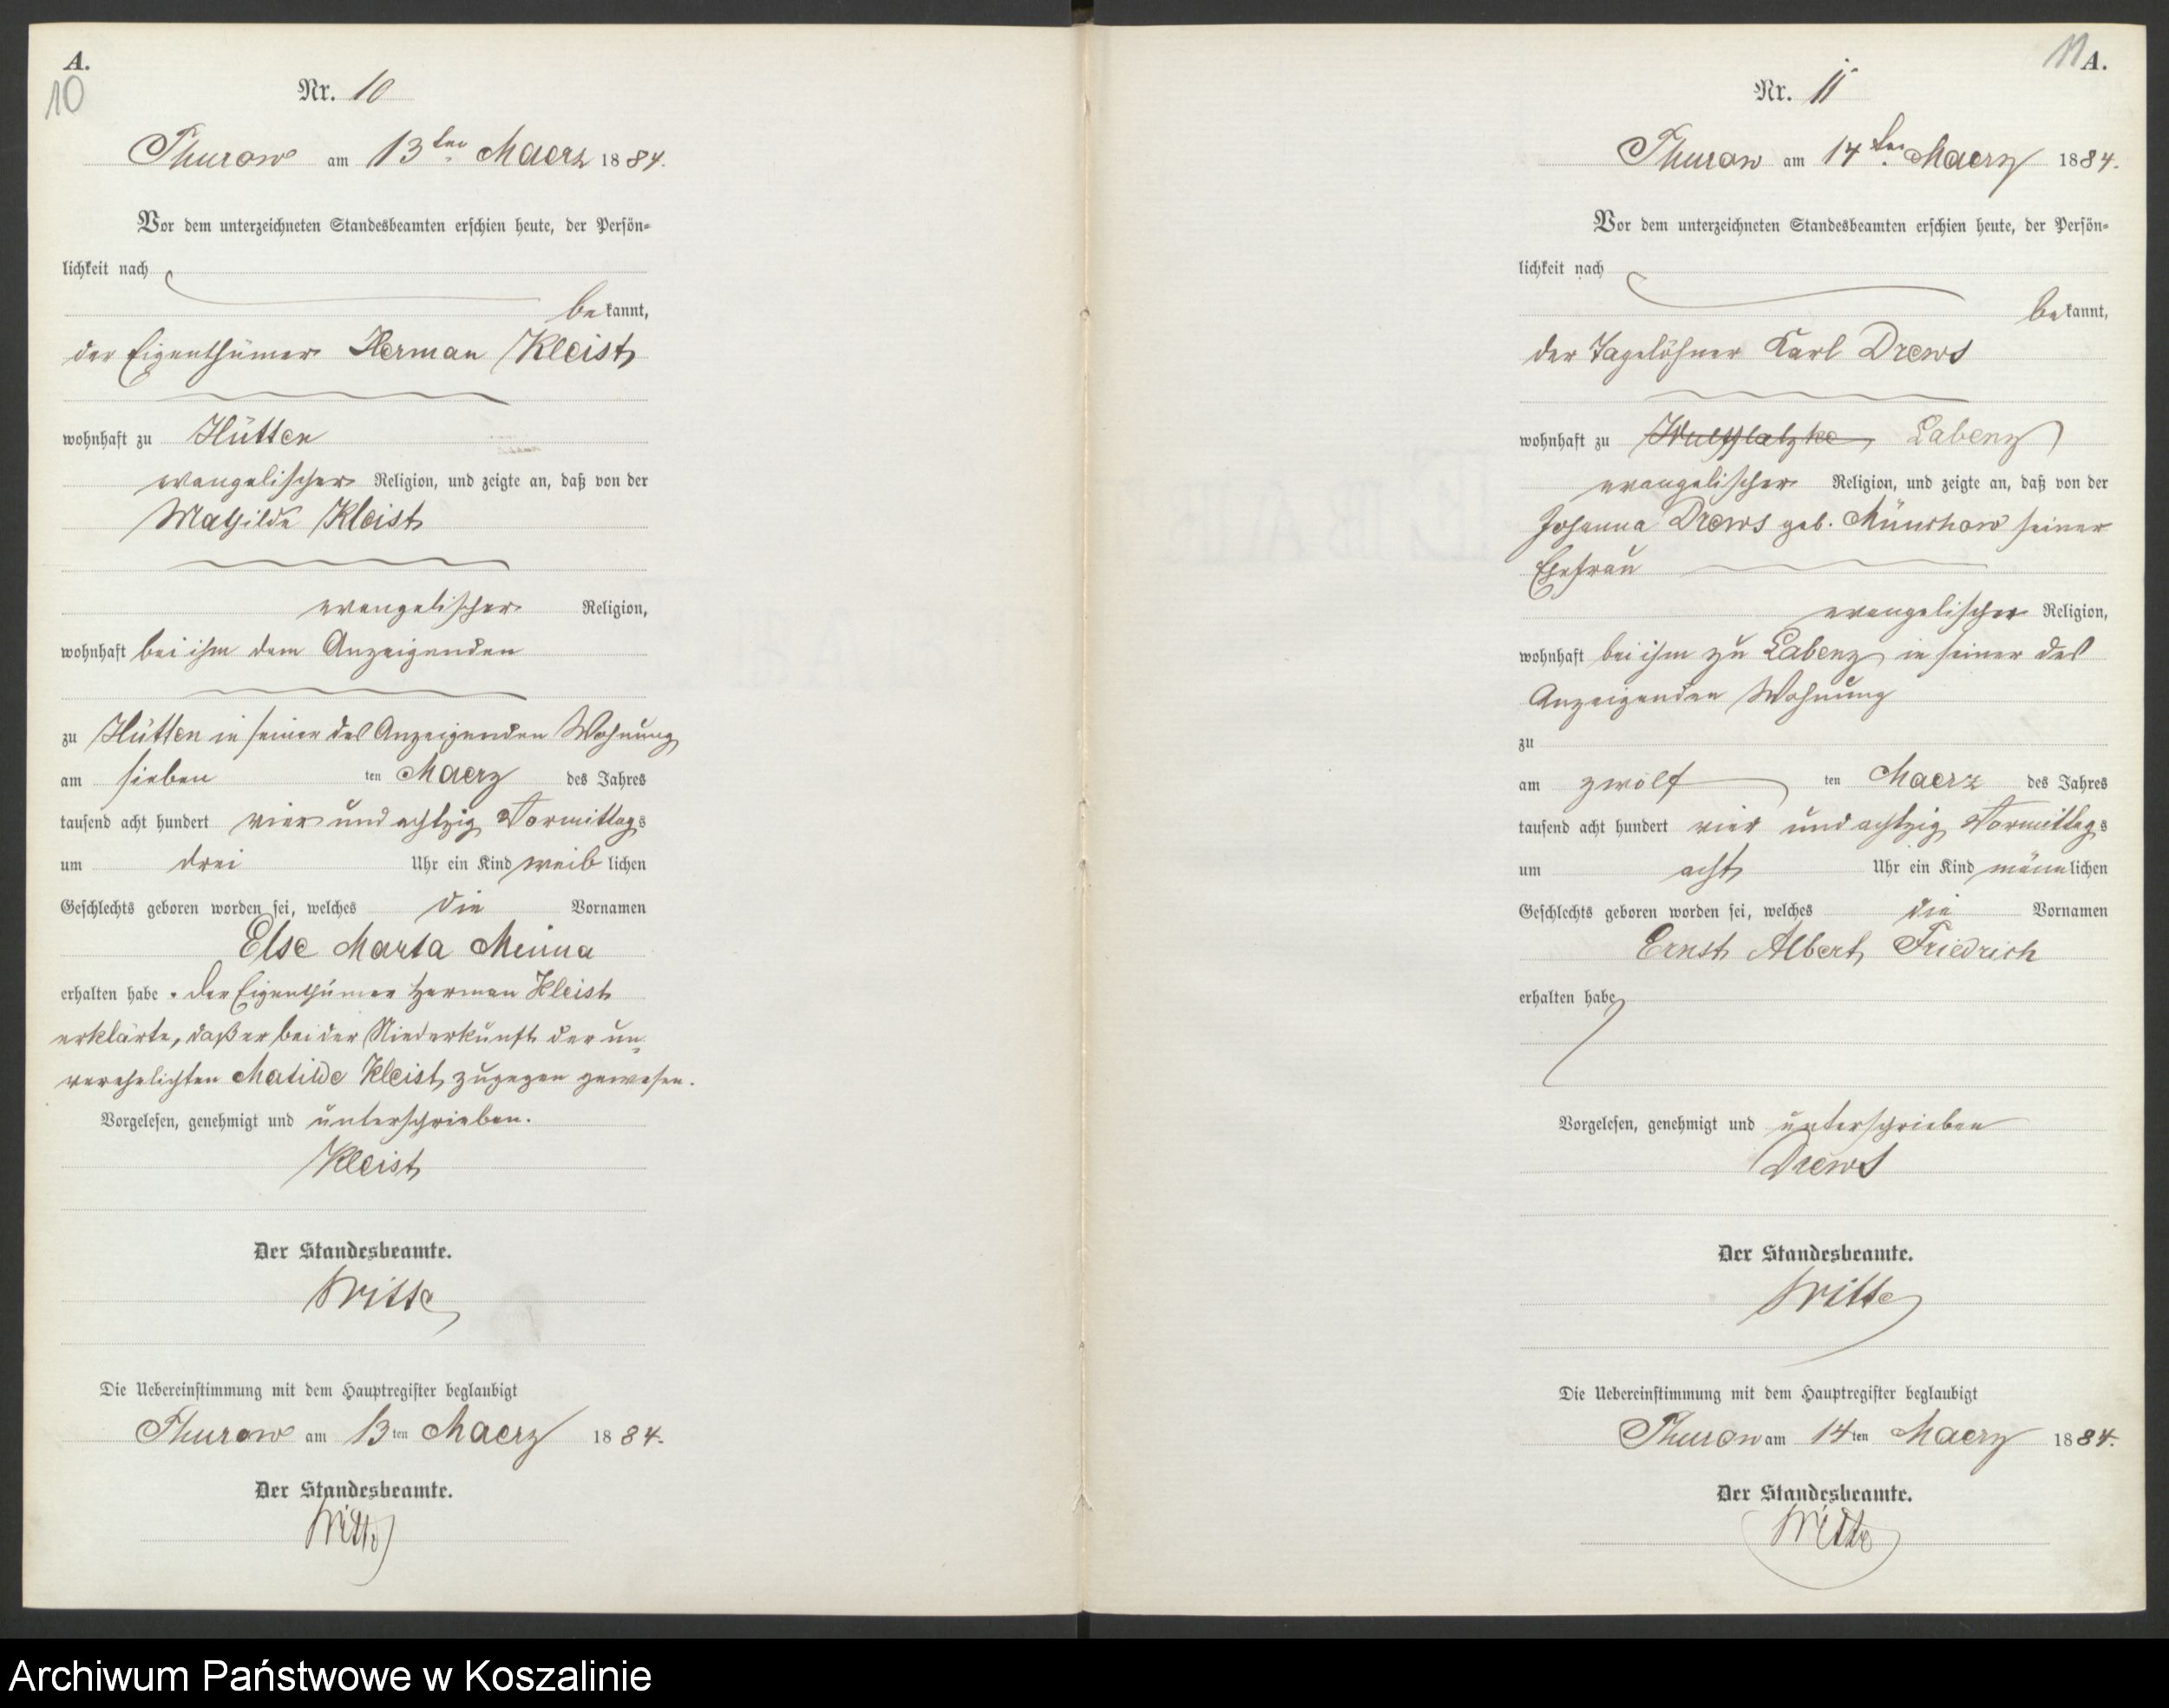 A.
10
Nr. 10
Thurow am 13ten Maerz 1884.
Vor dem unterzeichneten Standesbeamten erschien heute, der Persön-
lichkeit nach
bekannt,
der Eigenthümer Herman Kleist
wohnhaft zu Hütten
evangelischer Religion, und zeigte an, daß von der
Mathilde Kleist
evangelischer Religion,
wohnhaft bei ihm dem Anzeigenden
zu Hütten in seiner des Anzeigenden Wohnung
am sieben ten Maerz des Jahres
tausend acht hundert vier und achtzig Vormittags
um drei Uhr ein Kind weiblichen
Geschlechts geboren worden sei, welches die Vornamen
Else Marta Minna
erhalten habe. Der Eigenthümer Herman Kleist
erklärte, daß er bei der Niederkunft der un-
verehelichten Matilde Kleist zugegen gewesen.
Vorgelesen, genehmigt und unterschrieben.
Kleist
Der Standesbeamte.
Witte
Die Uebereinstimmung mit dem Hauptregister beglaubigt
Thurow am 13ten Maerz 1884.
Der Standesbeamte.
Witte
11 A.
Nr. 11
Thurow am 14ten Maerz 1884.
Vor dem unterzeichneten Standesbeamten erschien heute, der Persön-
lichkeit nach
bekannt,
der Tagelöhner Karl Drews
wohnhaft zu Wulfflatzke Labenz
evangelischer Religion, und zeigte an, daß von der
Johanna Drews geb. Münchow seiner
Ehefrau
evangelischer Religion,
wohnhaft bei ihm zu Labenz in seiner des
Anzeigenden Wohnung
zu
am zwölf ten Maerz des Jahres
tausend acht hundert vier und achtzig Vormittags
um acht Uhr ein Kind männlichen
Geschlechts geboren worden sei, welches die Vornamen
Ernst Albert Friedrich
erhalten habe
Vorgelesen, genehmigt und unterschrieben
Drews
Der Standesbeamte.
Witte
Die Uebereinstimmung mit dem Hauptregister beglaubigt
Thurow am 14ten Maerz 1884.
Der Standesbeamte.
Witte
Archiwum Państwowe w Koszalinie